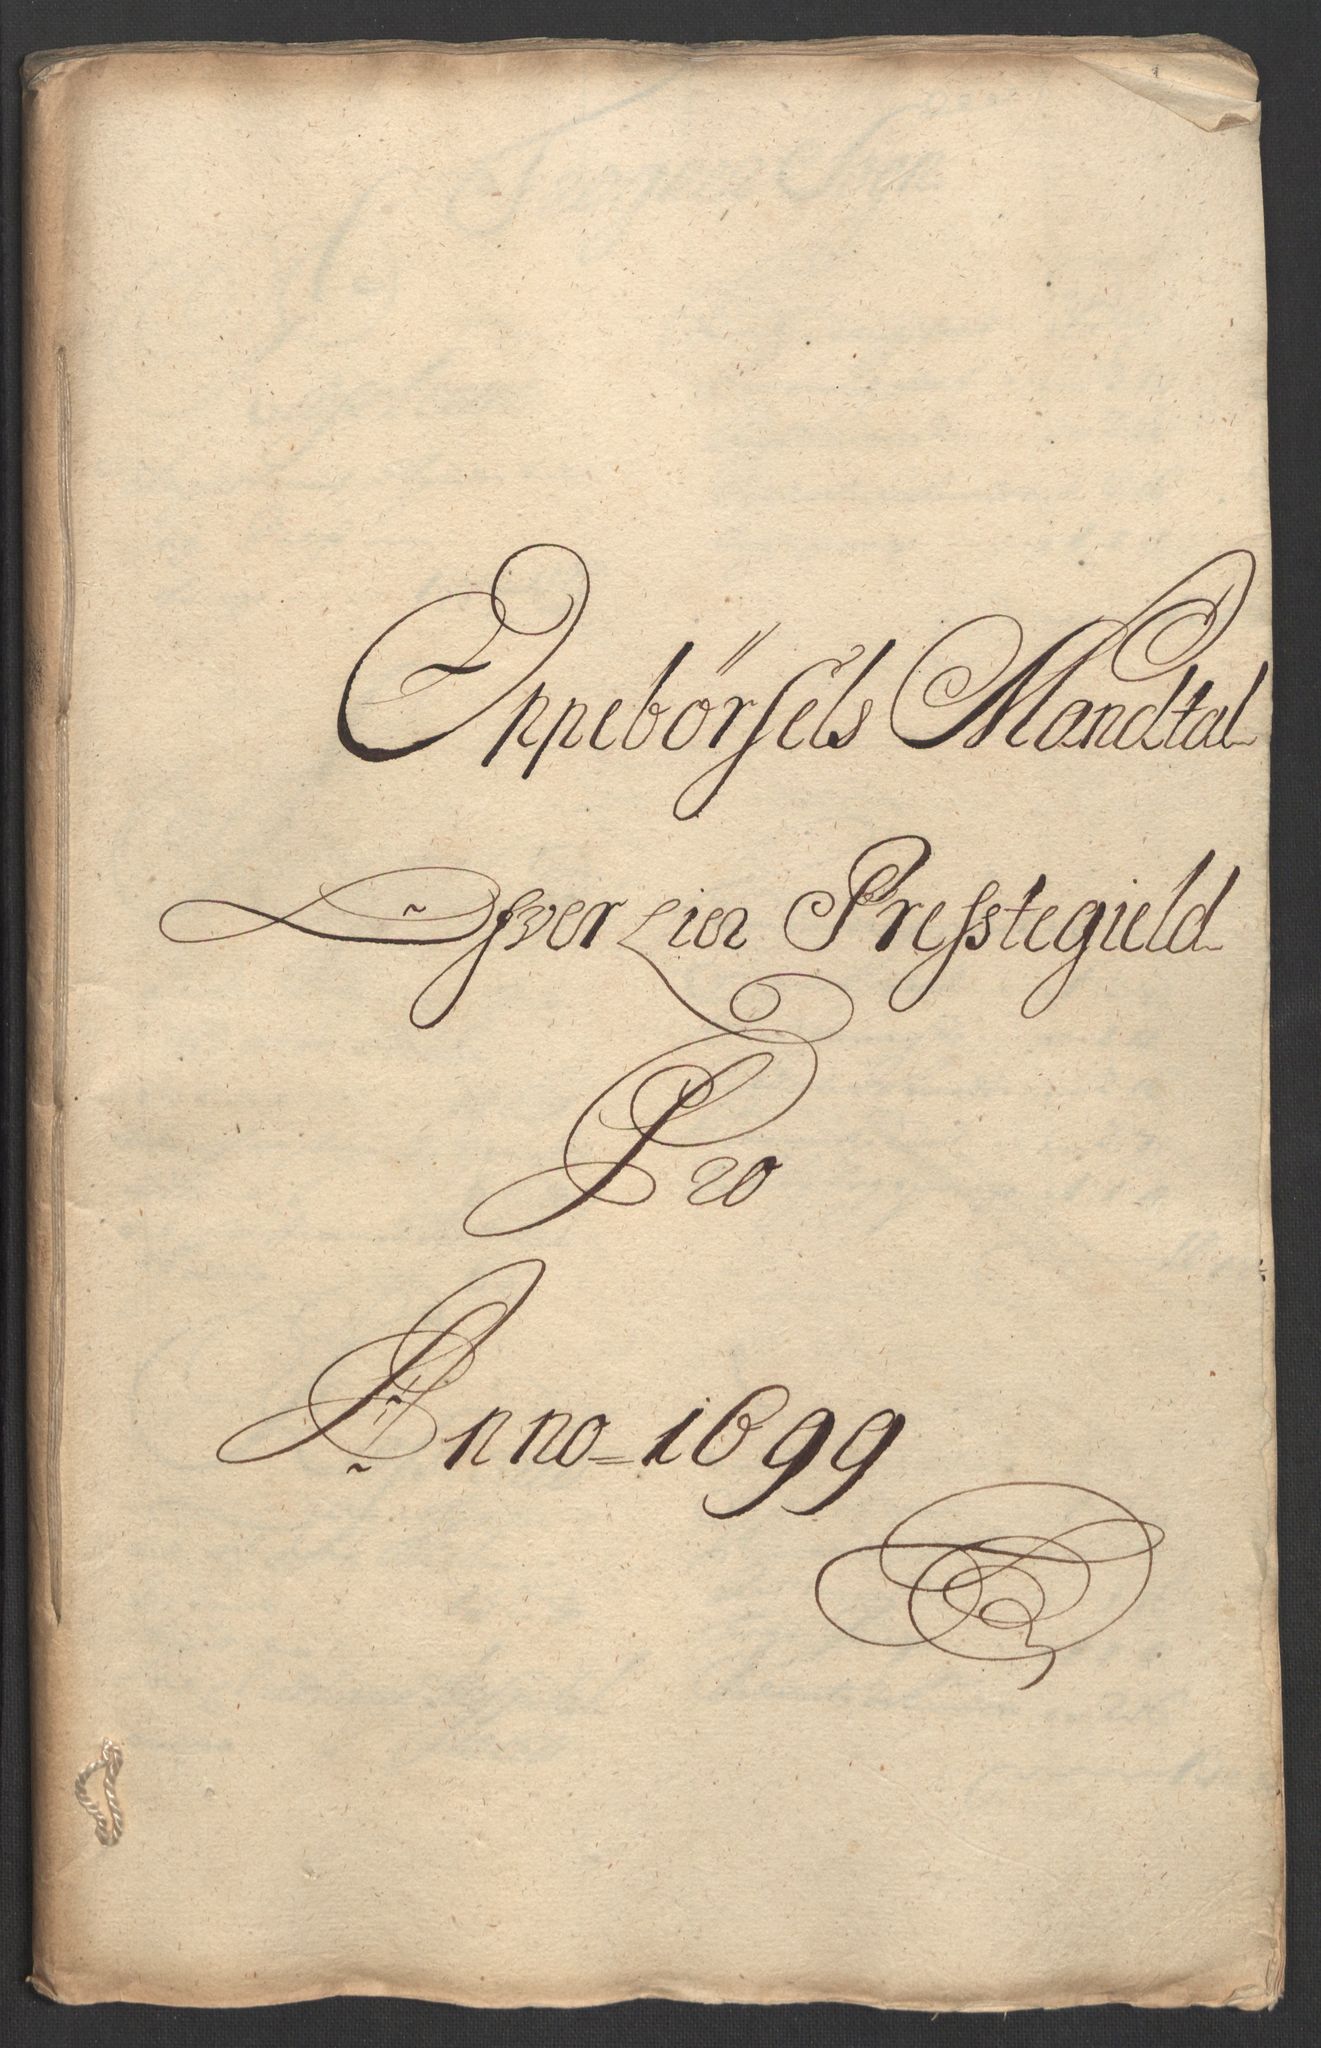 Oppebörsels Mandtal
Ofver Lier Presstegield
Pro
Anno 1699